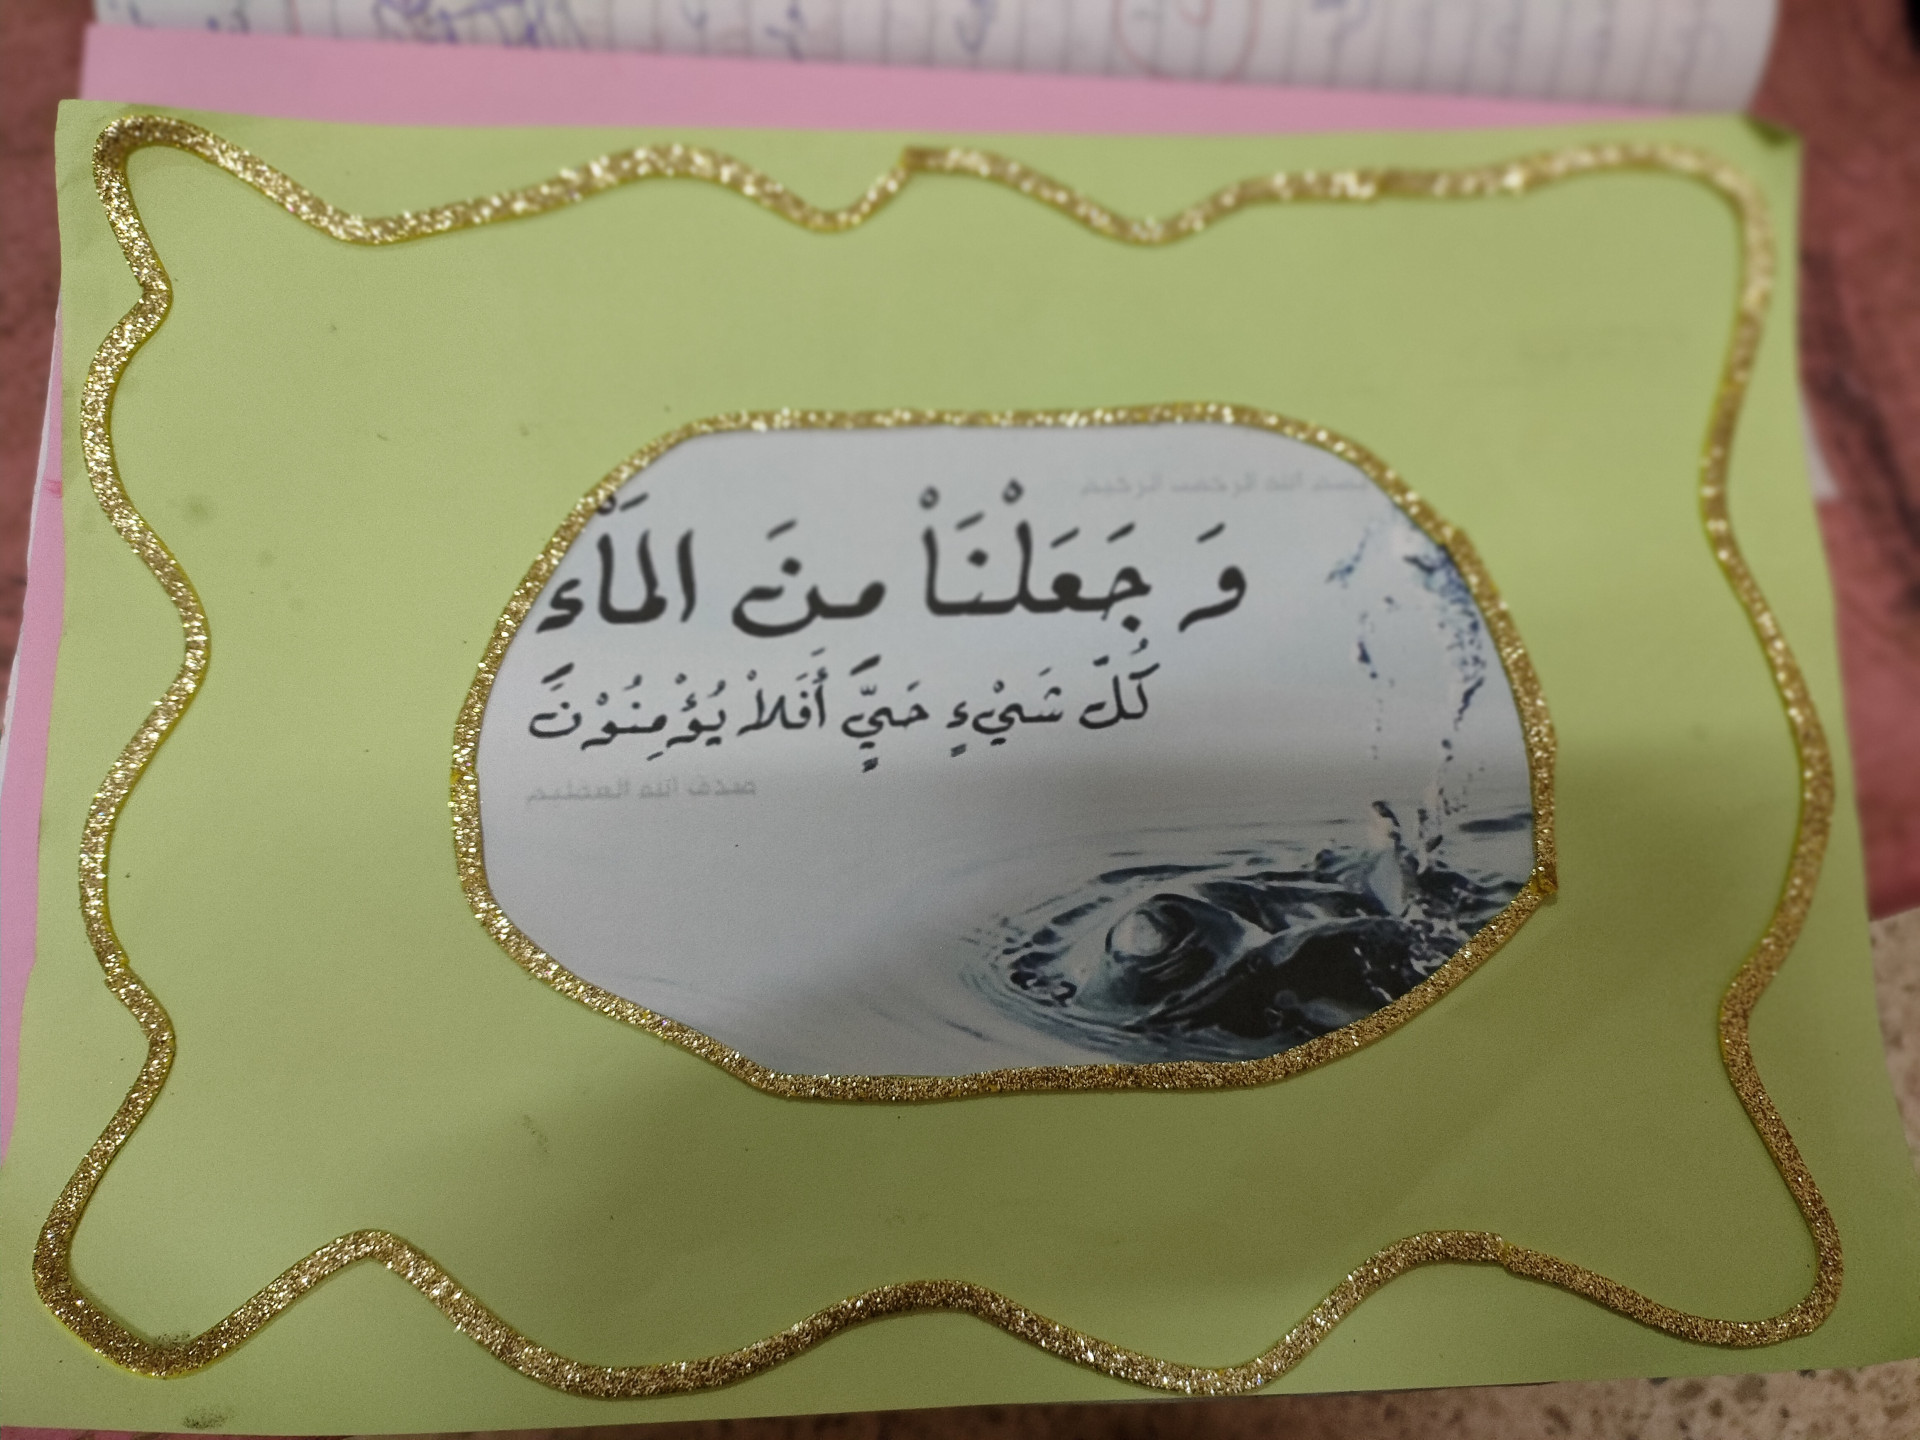 بسم الله الرحمن الرحيم
وَ جَعَلْنَاْ منَ الَمَاْء
كُلّ شَيْءٍ حَيٍّ أَفَلاْ يُؤْمِنُوْنَ
صدق الله العظيم